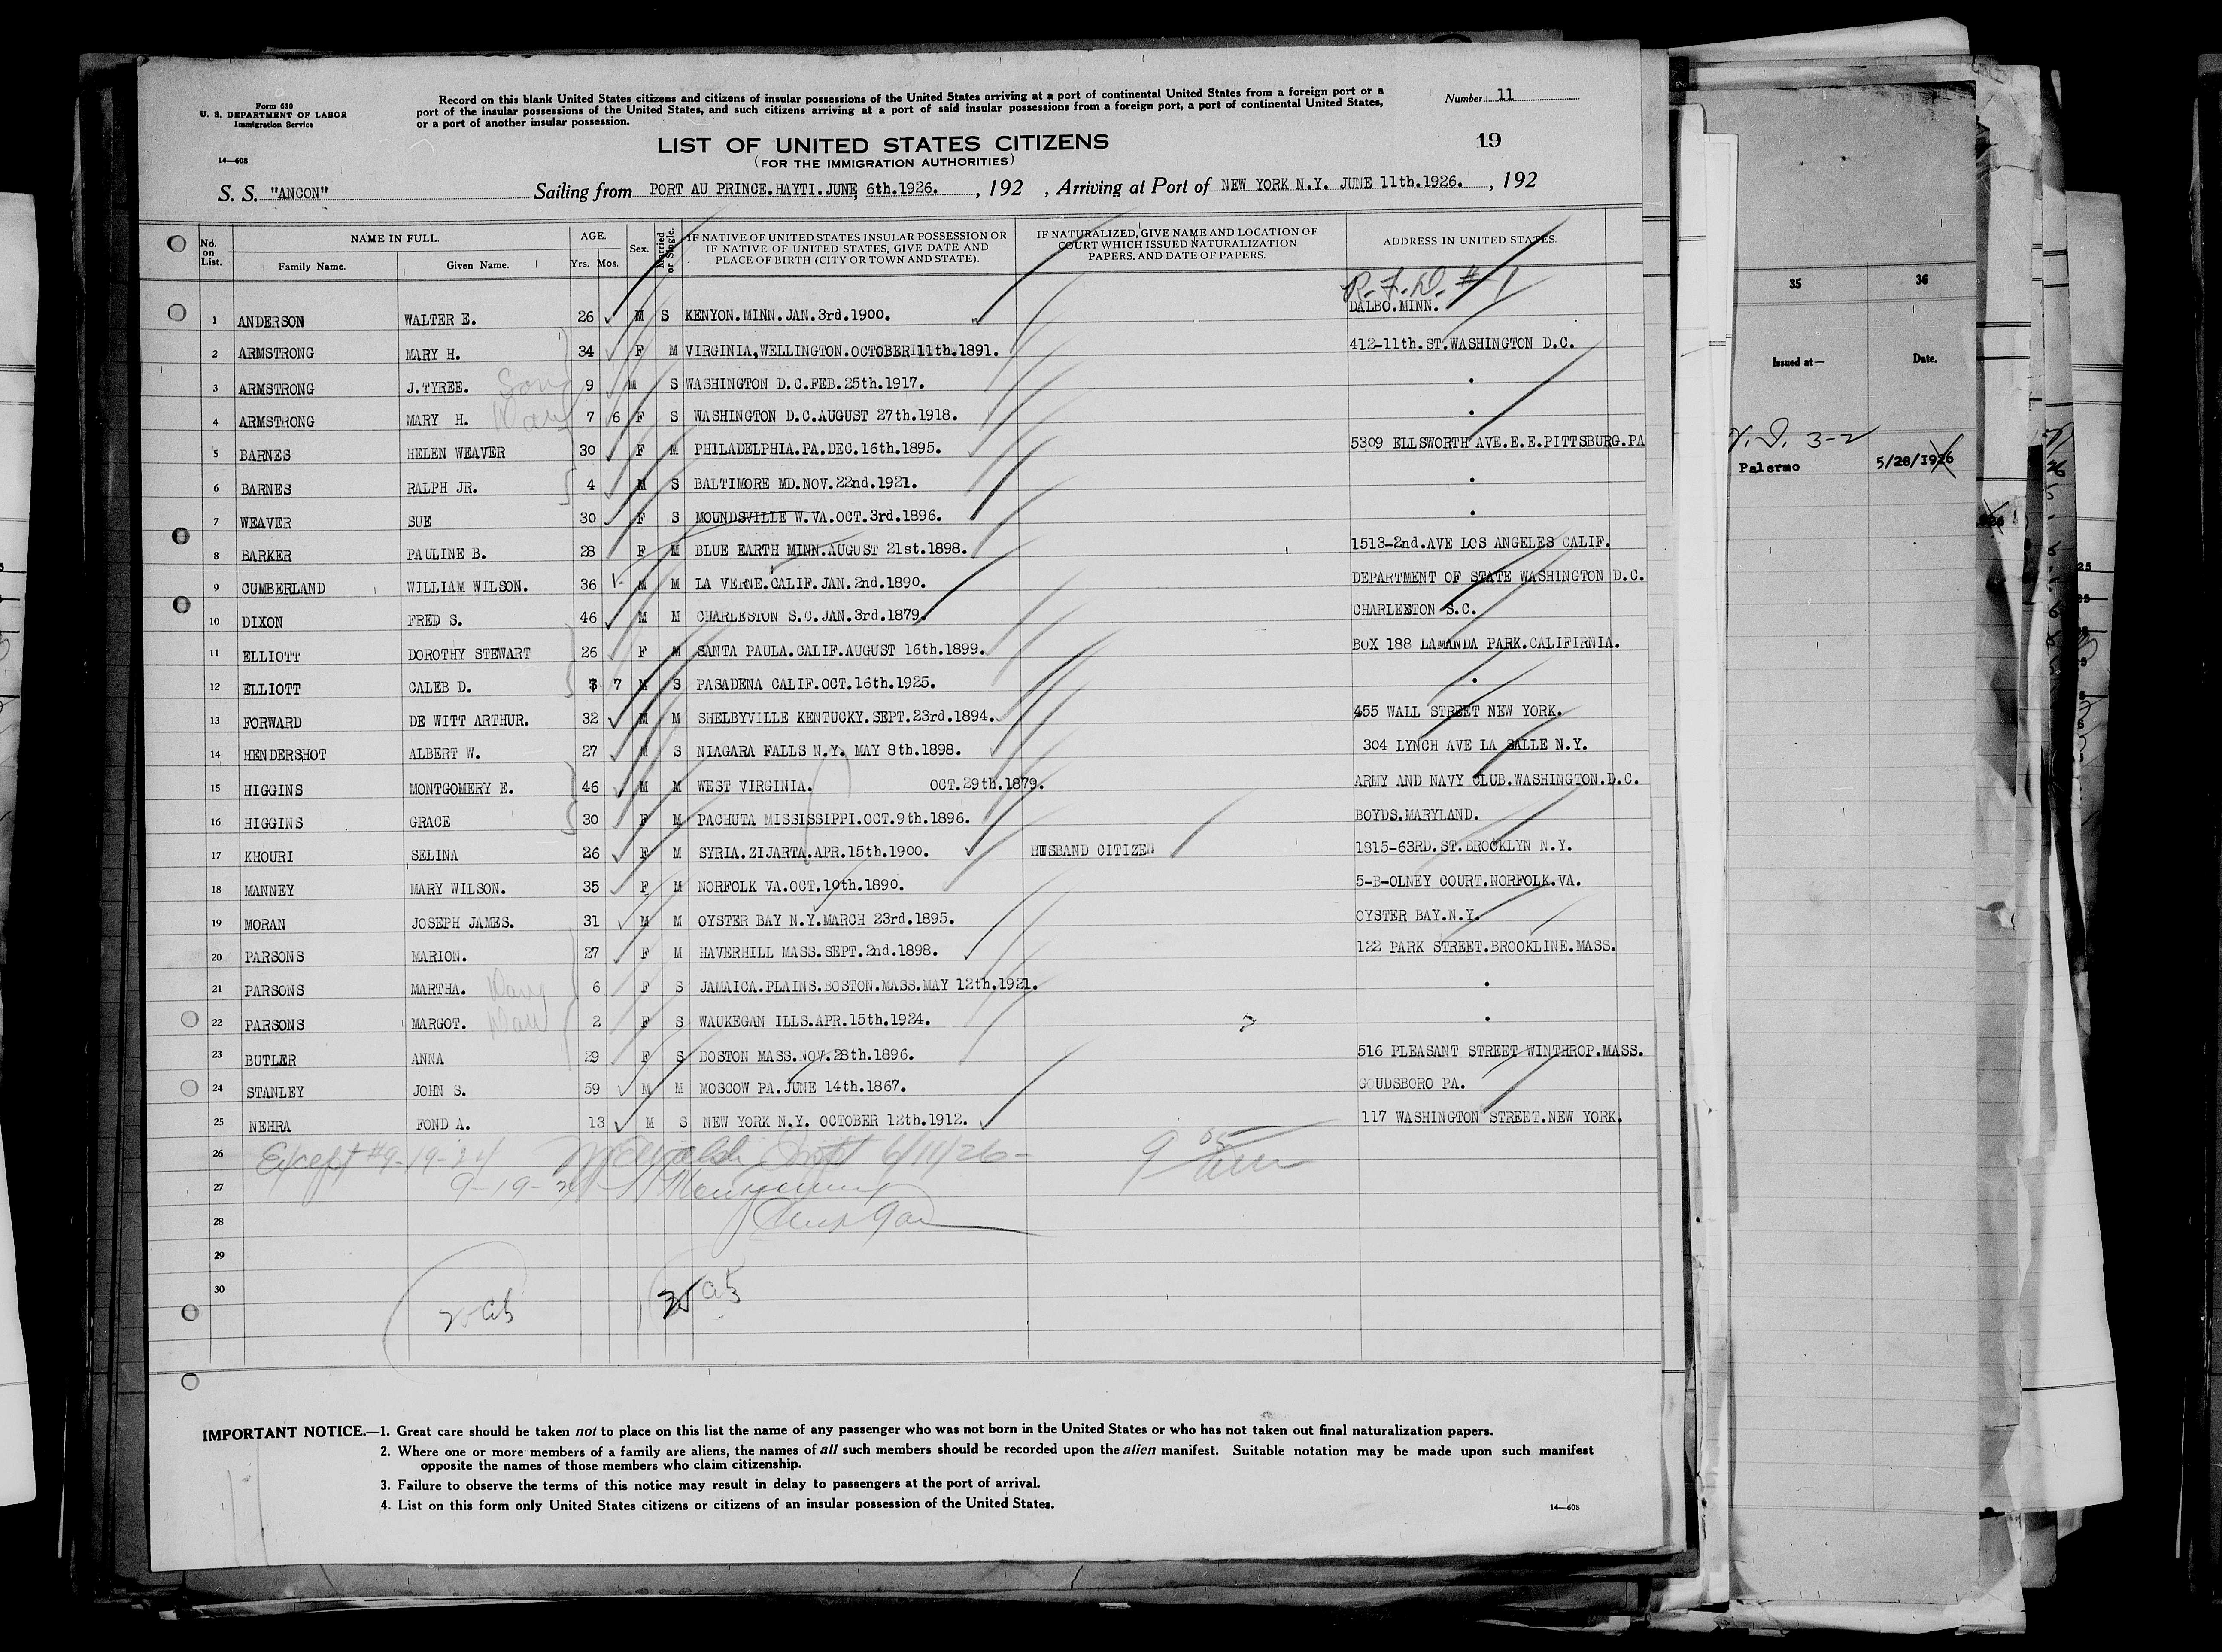 Form 630
U. S. DEPARTMENT OF LABOR
Immigration Service
14—608
Record on this blank United States citizens and citizens of insular possessions of the United States arriving at a port of continental United States from a foreign port or a
port of the insular possessions of the United States, and such citizens arriving at a port of said insular possessions from a foreign port, a port of continental United States,
or a port of another insular possession.
Number 11
LIST OF UNITED STATES CITIZENS
(FOR THE IMMIGRATION AUTHORITIES)
19
S. S. "ANCON" Sailing from PORT AU PRINCE.HAYTI.JUNE, 6th.1926. , 192 , Arriving at Port of NEW YORK N.Y. JUNE 11th.1926. , 192
No. on List. NAME IN FULL. Family Name. Given Name. AGE. Yrs. Mos. Sex. Married or Single. IF NATIVE OF UNITED STATES INSULAR POSSESSION OR IF NATIVE OF UNITED STATES, GIVE DATE AND PLACE OF BIRTH (CITY OR TOWN AND STATE). IF NATURALIZED, GIVE NAME AND LOCATION OF COURT WHICH ISSUED NATURALIZATION PAPERS, AND DATE OF PAPERS. ADDRESS IN UNITED STATES.
R.F.D. #1
1 ANDERSON WALTER E. 26 M S KENYON.MINN.JAN.3rd.1900. DALBO.MINN.
2 ARMSTRONG MARY H. 34 F M VIRGINIA,WELLINGTON.OCTOBER 11th.1891. 412-11th.ST.WASHINGTON D.C.
3 ARMSTRONG J.TYREE. Son 9 M S WASHINGTON D.C.FEB.25th.1917. "
4 ARMSTRONG MARY H. Dau 7 6 F S WASHINGTON D.C.AUGUST 27th.1918. "
5 BARNES HELEN WEAVER 30 F M PHILADELPHIA.PA.DEC.16th.1895. 5309 ELLSWORTH AVE.E.E.PITTSBURG.PA
6 BARNES RALPH JR. 4 M S BALTIMORE MD.NOV.22nd.1921. "
7 WEAVER SUE 30 F S MOUNDSVILLE W.VA.OCT.3rd.1896. "
8 BARKER PAULINE B. 28 F M BLUE EARTH MINN.AUGUST 21st.1898. 1513-2nd.AVE LOS ANGELES CALIF.
9 CUMBERLAND WILLIAM WILSON. 36 M M LA VERNE.CALIF.JAN.2nd.1890. DEPARTMENT OF STATE WASHINGTON D.C.
10 DIXON FRED S. 46 M M CHARLESTON S.C.JAN.3rd.1879. CHARLESTON S.C.
11 ELLIOTT DOROTHY STEWART 26 F M SANTA PAULA.CALIF.AUGUST 16th.1899. BOX 188 LAMANDA PARK.CALIFIRNIA.
12 ELLIOTT CALEB D. 7 M S PASADENA CALIF.OCT.16th.1925. "
13 FORWARD DE WITT ARTHUR. 32 M M SHELBYVILLE KENTUCKY.SEPT.23rd.1894. 455 WALL STREET NEW YORK.
14 HENDERSHOT ALBERT W. 27 M S NIAGARA FALLS N.Y. MAY 8th.1898. 304 LYNCH AVE LA SALLE N.Y.
15 HIGGINS MONTGOMERY E. 46 M M WEST VIRGINIA. OCT.29th.1879. ARMY AND NAVY CLUB.WASHINGTON.D.C.
16 HIGGINS GRACE 30 F M PACHUTA MISSISSIPPI.OCT.9th.1896. BOYDS.MARYLAND.
17 KHOURI SELINA 26 F M SYRIA.ZIJARTA.APR.15th.1900. HUSBAND CITIZEN 1815-63RD.ST.BROOKLYN N.Y.
18 MANNEY MARY WILSON. 35 F M NORFOLK VA.OCT.10th.1890. 5-B-OLNEY COURT.NORFOLK.VA.
19 MORAN JOSEPH JAMES. 31 M M OYSTER BAY N.Y.MARCH 23rd.1895. OYSTER BAY.N.Y.
20 PARSONS MARION. 27 F M HAVERHILL MASS.SEPT.2nd.1898. 122 PARK STREET.BROOKLINE.MASS.
21 PARSONS MARTHA. Dau 6 F S JAMAICA.PLAINS.BOSTON.MASS.MAY 12th.1921. "
22 PARSONS MARGOT. Dau 2 F S WAUKEGAN ILLS.APR.15th.1924. "
23 BUTLER ANNA 29 F S BOSTON MASS.NOV.28th.1896. 516 PLEASANT STREET WINTHROP.MASS.
24 STANLEY JOHN S. 59 M M MOSCOW PA.JUNE 14th.1867. GOUDSBORO PA.
25 NEHRA FOND A. 13 M S NEW YORK N.Y. OCTOBER 12th.1912. 117 WASHINGTON STREET.NEW YORK.
26 Except #9-19-24 6/11/26
27 9-19-24
28
29
30
IMPORTANT NOTICE.—1. Great care should be taken not to place on this list the name of any passenger who was not born in the United States or who has not taken out final naturalization papers.
2. Where one or more members of a family are aliens, the names of all such members should be recorded upon the alien manifest. Suitable notation may be made upon such manifest
opposite the names of those members who claim citizenship.
3. Failure to observe the terms of this notice may result in delay to passengers at the port of arrival.
4. List on this form only United States citizens or citizens of an insular possession of the United States.
14—608
35 36
Issued at— Date.
3-2
Palermo 5/28/1926